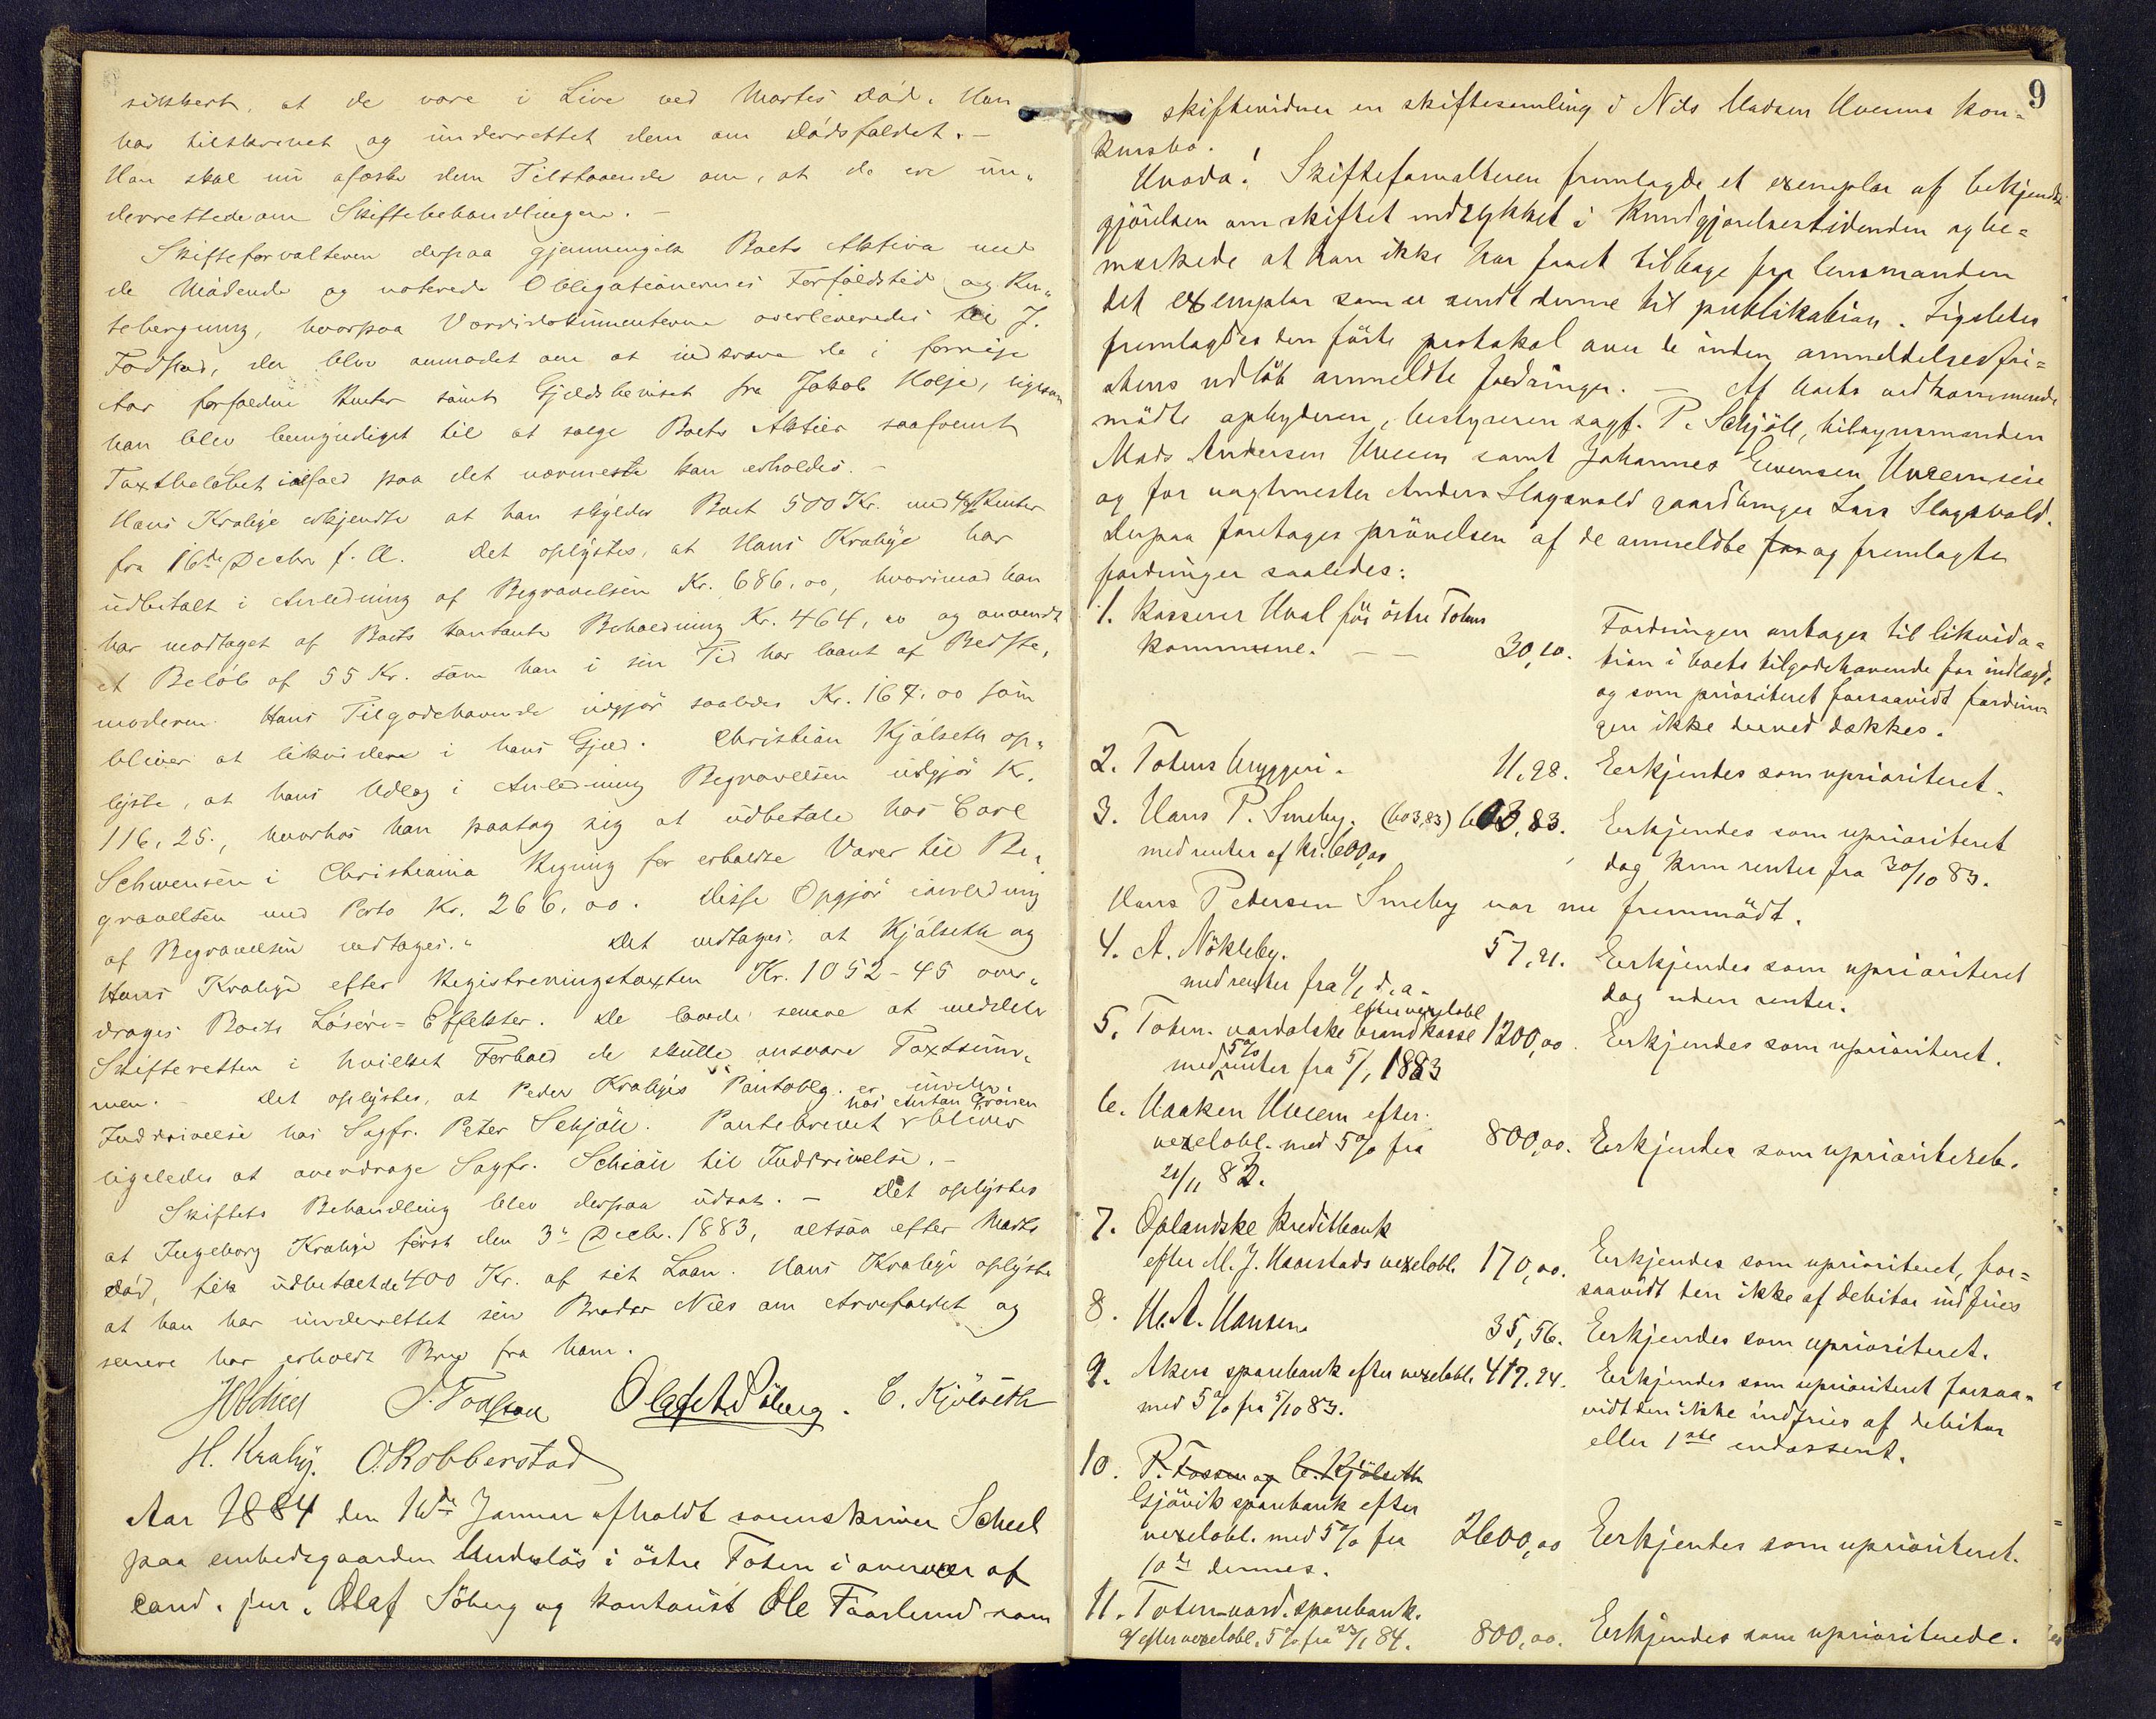 sikkert, at de vare i Live ved Martes Död. Han
har tilskrevet og underrettet dem om Dödsfaldet. –
Han skal nu afæske dem Tilstaaende om, at de ere un-
derrettede om Skiftebehandlingen. –
Skifteforvalteren derpaa gjennemgik Boets Aktiva med
de Mödende og noterede Obligationernes Forfaldstid og Ren-
teberegning, hvorpaa Værdidokumenterne overleveredes til J.
Fodstad, der blev anmodet om at indkræve de i forrige
Aar forfaldne Renter samt Gjeldsbeviset fra Jakob Kolje, ligesom
han blev bemyndiget til at sælge Boets Aktier saafremt
Taxtbelöbet ialfald paa det nærmeste kan erholdes. –
Hans Krabye erkjendte at han skylder Boet 500 Kr. med 4% Renter
fra 16de Decbr f. A. Det oplystes, at Hans Krabye har
udbetalt i Anledning af Begravelsen Kr. 686.00, hvorimod han
har modtaget af Boets kontante Beholdning Kr. 464,00 og anvendt
et Belöb af 55 Kr. som han i sin Tid har laant af Bedste-
moderen. Hans Tilgodehavende udgjör saaledes Kr. 167.00 som
bliver at likvidere i hans Gjæld. Christian Kjölseth op-
lyste, at hans Udlæg i Anledning Begravelsen udgjör Kr.
116,25., hvorhos han paatog sig at udbetale hos Carl
Schwensen i Christiania Regning for erholdte Varer til Be-
gravelsen med Porto Kr. 266.00. Disse Opgjör i anledning
af Begravelsen vedtages." Det vedtages, at Kjölseth og
Hans Krabye efter Registreringstaxten Kr. 1052-45 over-
drages Boets Lösöre-Effekter. De lovede senere at meddele
Skifteretten i hvilket Forhold de skulle ansvare Taxtsum-
men. – Det oplystes, at Peder Krabyes Pantoblg. er under
Inddrivelse hos Sagfr. Peter Schjöll. Pantebrevet hos Anton Grönen bliver
ligeledes at overdrage Sagfr. Schiöll til Inddrivelse. –
Skiftets Behandling blev derpaa udsat. – Det oplystes
at Ingeborg Krabye först den 3die Decbr. 1883, altsaa efter Martes
Död, fik udbetalt de 400 Kr. af sit Laan. Hans Krabye oplyste
at han har underrettet sin Broder Nils om Arvefaldet og
senere har erholdt Brev fra ham.
J. Fodstad Olaf A Söberg. C. Kjölseth
H. Kraby. O. Robberstad
Aar 1884 den 16de Januar afholdt sorenskriver Scheel
paa embedsgaarden Underlös i östre Toten i overvær af
cand. jur. Olaf Söberg og kontorist Ole Faarlund som
9
skiftevidner en skiftesamling i Nils Madsen Hveems kon-
kursbo.
Hvoda! Skifteforvalteren fremlagde et exemplar af bekjendt-
gjörelsen om skiftet indrykket i Kundgjörelsestidenden og be-
mærkede at han ikke har faaet tilbage fra lensmanden
det exemplar som er sendt denne til publikation. Ligeledes
fremlagdes den förte protokol over de inden anmeldelsesfri-
stens udlöb anmeldte fordringer. – Af boets vedkommende
mödte opbyderen, bestyreren sagf. P. Schjöll, tilsynsmanden
Mads Andersen Hveem samt Johannes Evensen Hveemseie
og for vagtmester Anders Slagsvold gaardbruger Lars Slagsvold.
Derpaa foretages prövelsen af de anmeldte for og fremlagte
fordringer saaledes:
1. Kasserer Hval for östre Totens
kommune. – – 30,10. Fordringen antages til likvida-
tion i boets tilgodehavende for indlagde
og som prioriteret forsaavidt fordrin-
gen ikke derved dækkes.
2. Totens bryggeri. 11.98. Erkjendes som uprioriteret.
3. Hans P. Smeby. (603,83) 603,83. Erkjendes som uprioriteret
med renter af kr. 600,00 dog kun renter fra 30/10 83.
Hans Petersen Smeby var nu fremmödt.
4. A. Nökleby. 57,21. Erkjendes som uprioriteret
med renter fra 1/1 d. a. dog uden renter.
5. Toten-vardalske brandkasse efter vexelobl. 1200,00. Erkjendes som uprioriteret.
med 5% renter fra 5/1 1883
6. Haaken Hveem efter
vexelobl. med 5% fra 800,00. Erkjendes som uprioriteret.
21/11 82.
7. Oplandske kreditbank
efter M. J. Haarstads vexelobl. 170,00. Erkjendes som uprioriteret, for-
saavidt den ikke af debitor indfries
8. H. A. Hansen 35,56. Erkjendes som uprioriteret.
9. Akers sparebank efter vexelobl. 417.24. Erkjendes som uprioriteret forsaa-
med 5% fra 5/10 83. vidt den ikke indfries af debitor
eller 1ste endossent.
10. P. Fossen og C. Kjölseth
Gjövik sparebank efter
vexelobl. med 5% fra 2600,00 Erkjendes som uprioriteret.
10de dennes.
11. Toten-vard. sparebank.
efter vexelobl. 5% fra 23/1 84. 800,00. Erkjendes som uprioriterede.